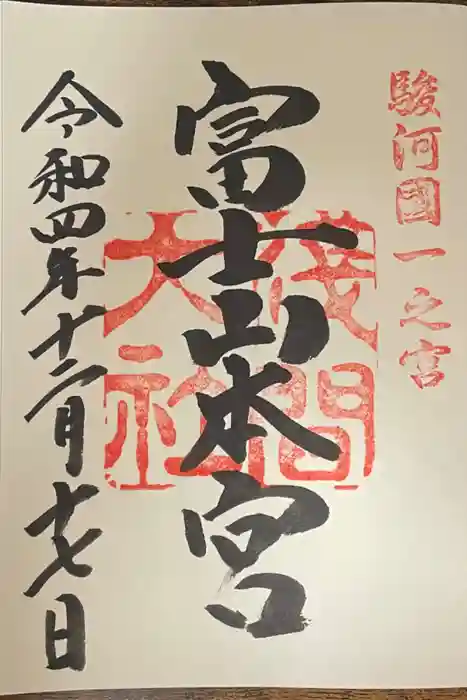 駿河國一之宮
富士山本宮
淺間
大社
令和四年十二月十七日